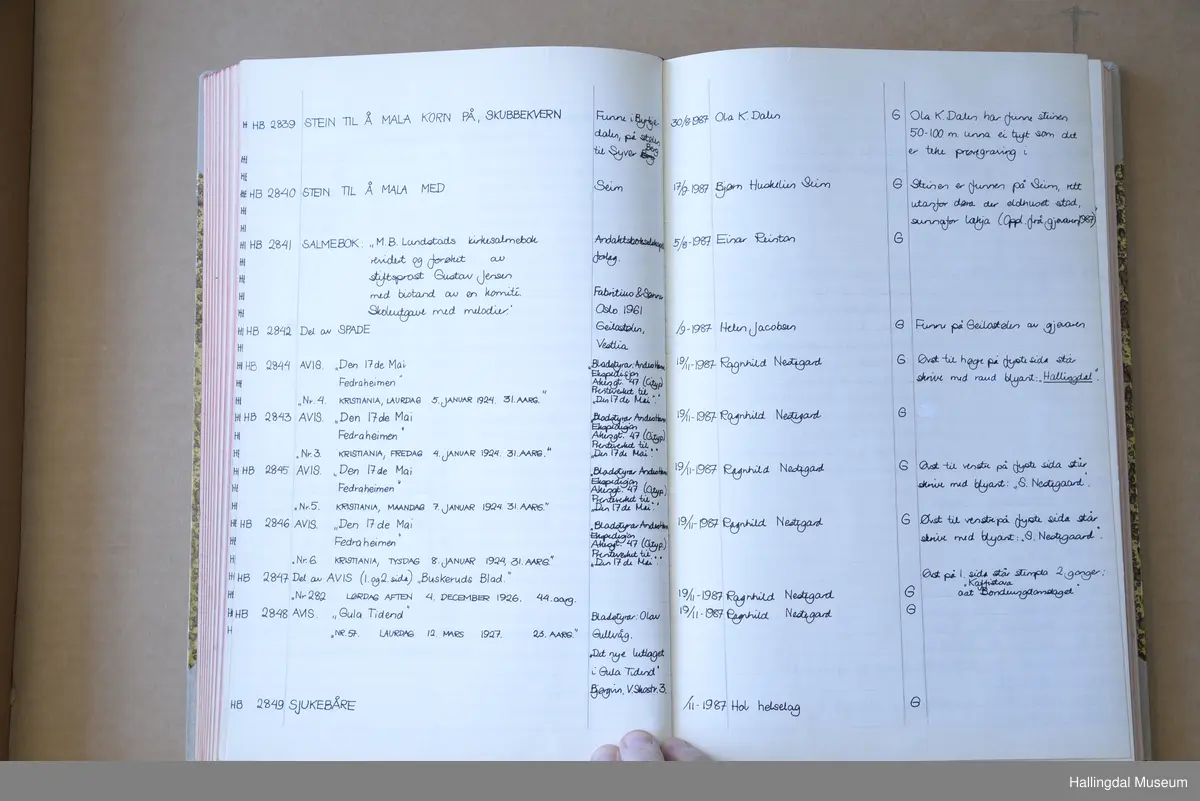 HB 2839 STEIN TIL Å MALA KORN PÅ, SKUBBEKVERN Funne i Byrtje 30/8 1987 Ola K. Dalen G Ola K. Dalen har funne steinen
dalen, på stølen 50-100 m. unna ei tuft som det
til Syver Berg er teke prøvegraving i
HB 2840 STEIN TIL Å MALA MED Seim 17/9 1987 Bjørn Huskelien Seim G Steinen er funnen på Seim, rett
utanfor døra der eldhuset stod,
sunnafor Lækja (Oppl. frå gjevaren 1987)
HB 2841 SALMEBOK: „M.B. Landstads kirkesalmebok Andaktsbokselskapets 5/8-1987 Einar Reinton G
revidert og forøket av forlag.
stiftsprost Gustav Jensen
med bistand av en komité. Fabritius & Sønner
Skoleutgave med melodier." Oslo 1961
HB 2842 Del av SPADE Geilostølen, /9-1987 Helen Jacobsen G Funne på Geilostølen av gjevaren
Vestlia
HB 2844 AVIS. „Den 17 de Mai „Bladstyrar: Anders Hovden 19/11-1987 Ragnhild Nestegard G Øvst til høgre på fyste sida står
Ekspedisjon
Fedraheimen" Akersgt. 47 (Cityp) skrive med raud blyant: „Hallingdal".
Prenteverket til
„Nr. 4. KRISTIANIA, LAURDAG 5. JANUAR 1924. 31. AARG." „Den 17 de Mai"."
HB 2843 AVIS. „Den 17 de Mai „Bladstyrar Anders Hovden 19/11-1987 Ragnhild Nestegard G
Ekspedisjon
Fedraheimen" Akersgt. 47 (Cityp)
Prenteverket til
„Nr. 3. KRISTIANIA, FREDAG 4. JANUAR 1924. 31. AARG." „Den 17 de Mai"."
HB 2845 AVIS. „Den 17 de Mai „Bladstyrar Anders Hovden 19/11-1987 Ragnhild Nestegard G Øvst til venstre på fyste sida står
Ekspedisjon
Fedraheimen" Akersgt. 47 (Cityp) skrive med blyant: „S. Nestegaard".
Prenteverket til
„Nr. 5. KRISTIANIA, MAANDAG 7. JANUAR 1924. 31 AARG." „Den 17 de Mai"."
HB 2846 AVIS. „Den 17 de Mai „Bladstyrar Anders Hovden 19/11-1987 Ragnhild Nestegard G Øvst til venstre på fyste sida står
Ekspedisjon
Fedraheimen" Akersgt. 47 (Cityp) skrive med blyant: „S. Nestegaard".
Prenteverket til
„Nr. 6 KRISTIANIA, TYSDAG 8. JANUAR 1924. 31 AARG." „Den 17 de Mai"."
HB 2847 Del av AVIS (1. og 2. side) „Buskeruds Blad." Øvst på 1. side står stempla 2. ganger:
„Nr 282 LØRDAG AFTEN 4. DECEMBER 1926. 44. aarg. 19/11-1987 Ragnhild Nestegard G „Kaffistova åt Bondeungdomslaget"
HB 2848 AVIS. „Gula Tidend" Bladstyrar: Olav 19/11-1987 Ragnhild Nestegard G
„NR. 57. LAURDAG 12. MARS 1927. 23. AARG." Gullvåg.
„Det nye lutlaget
i Gula Tidend"
Bjørgvin, V. Skostr. 3.
HB 2849 SJUKEBÅRE /11-1987 Hol helselag G
Hallingdal Museum